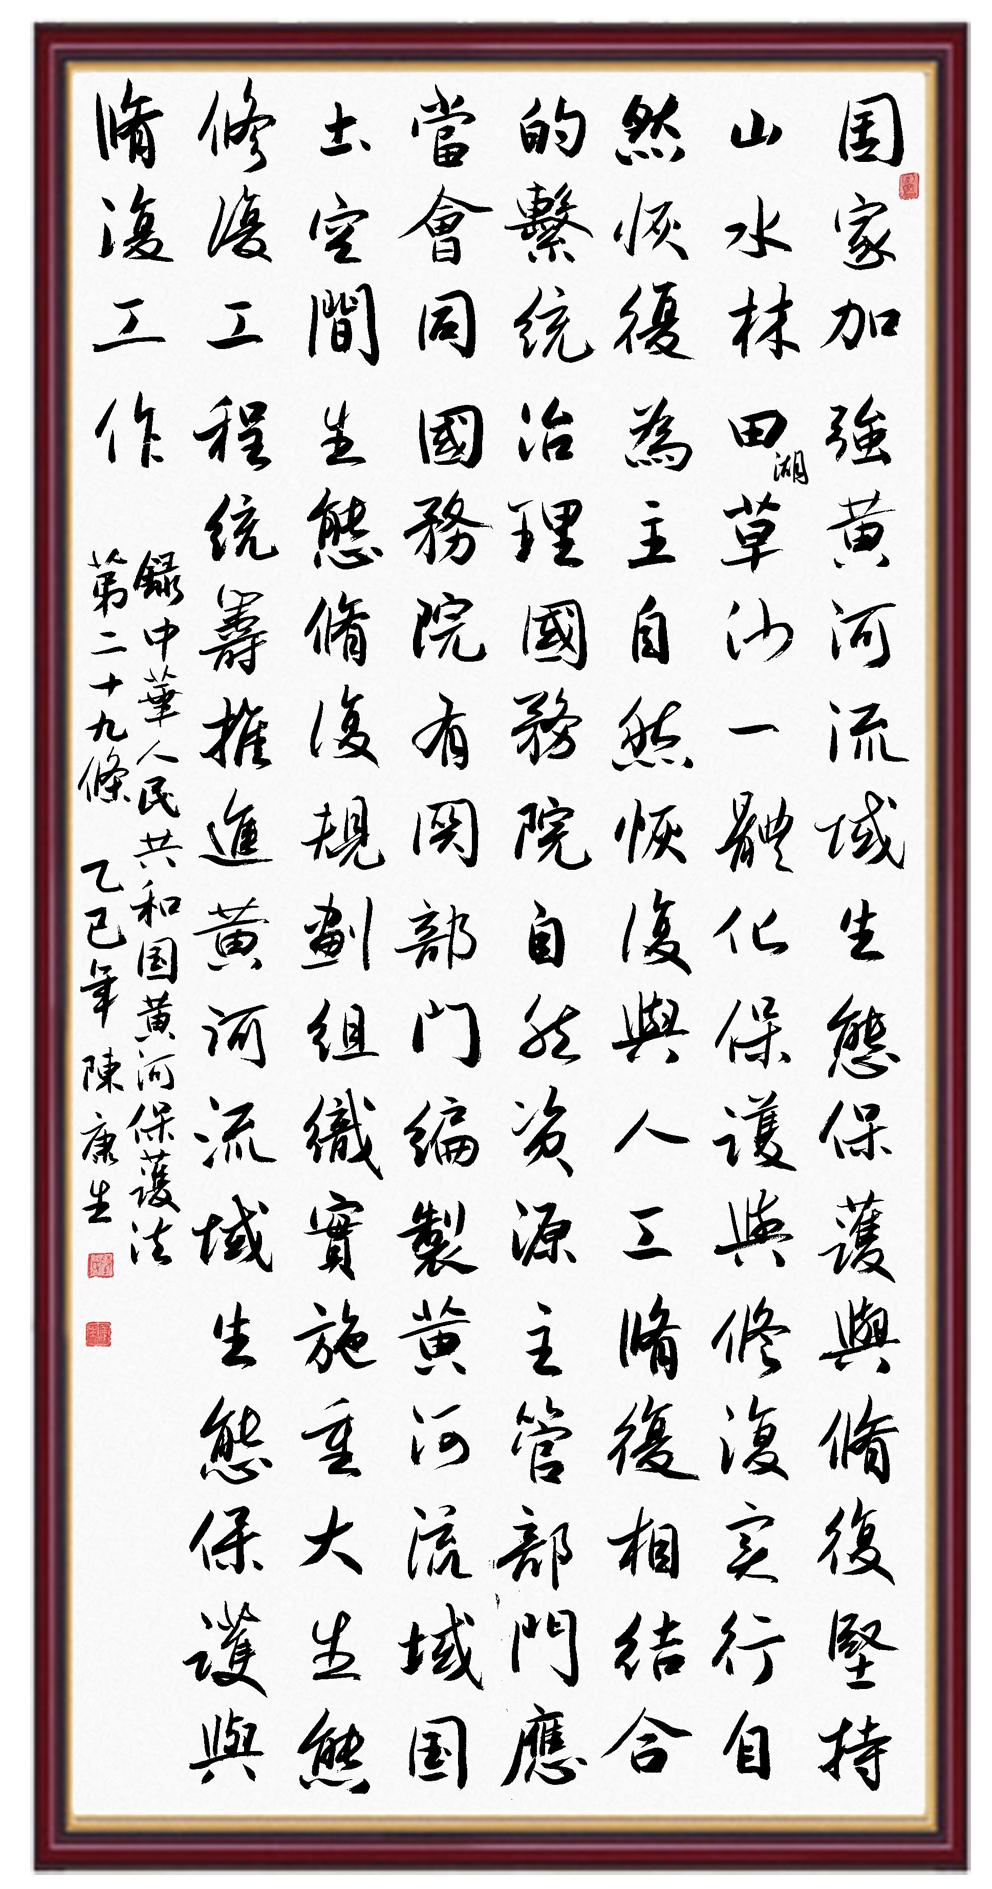 国家加強黄河流域生態保護與脩復堅持
山水林田湖草沙一體化保護與修復实行自
然恢復為主自然恢復與人工脩復相結合
的繫统治理國務院自然资源主管部門應
當會同國務院有関部门编製黄河流域国
土空間生態脩復規劃组織實施重大生態
修復工程统籌推進黄河流域生態保護與
脩復工作
録中華人民共和国黄河保護法
第二十九條 乙巳年 陳康生